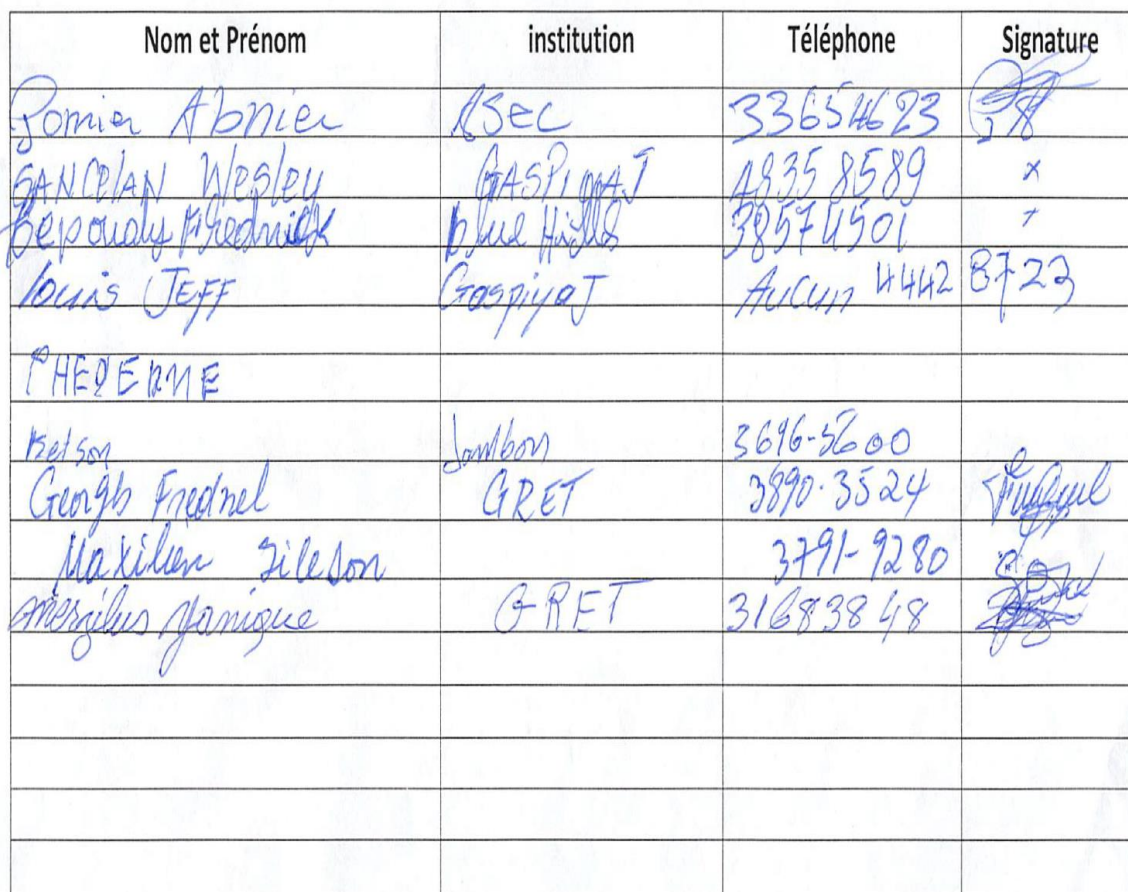 Nom et Prénom institution Téléphone Signature
Pomier Abnier Asec 33654623
SANCELAN Wesley GASPIYAJ 4835 8589 x
Fredrick blue Hills 38574501 x
louis JEFF Gaspiyaj Aucun 4442 8723
Kelson Jambon 3696-5600
Georgb Frednel GRET 3890-3524
Maxilien Sileson 3791-9280
Merzilus Yanique GRET 31683848